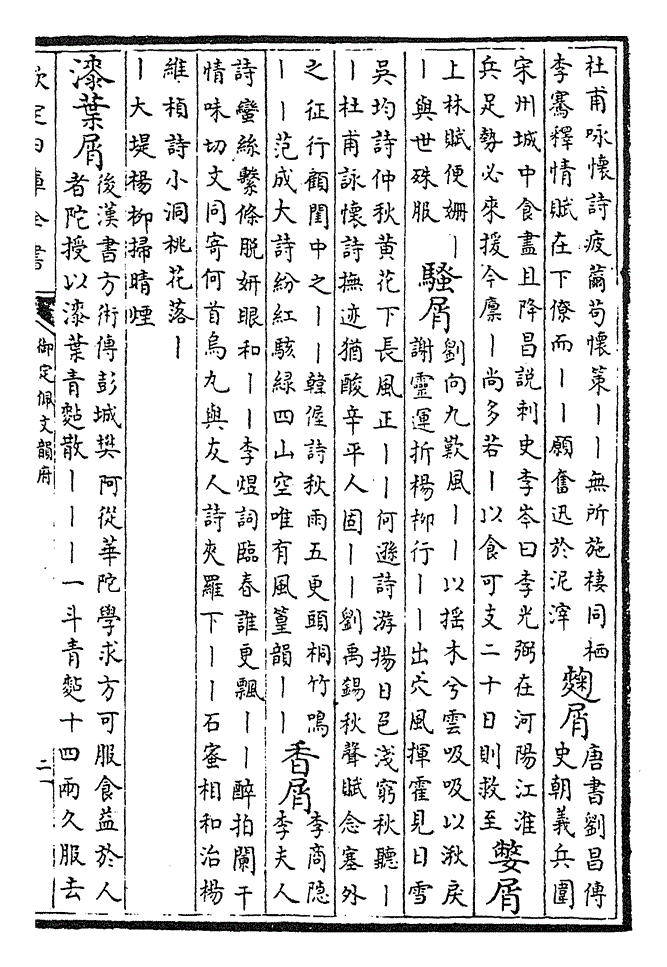 杜甫咏懷詩疲薾苟懷策丨丨無所施棲同栖
李騫釋情賦在下僚而丨丨願奮迅於泥滓
麴屑
唐書劉昌傳
史朝義兵圍
宋州城中食盡且降昌説刺史李岑曰李光弼在河陽江淮
兵足勢必來援今廪丨尚多若丨以食可支二十日則救至
嫳屑
上林賦便姗丨
丨與世殊服
騷屑
劉向九歎風丨丨以揺木兮雲吸吸以湫戾
謝靈運折楊柳行丨丨出穴風揮霍見日雪
吳均詩仲秋黄花下長風正丨丨何遜詩游揚日色淺窮秋聽丨
丨杜甫詠懷詩撫迹猶酸辛平人固丨丨劉禹錫秋聲賦念塞外
之征行顧閨中之丨丨韓偓詩秋雨五更頭桐竹鳴
丨丨范成大詩紛紅駭緑四山空唯有風篁韻丨丨
香屑
李商隐
李夫人
詩蠻絲繫條脱妍眼和丨丨李煜詞臨春誰更飄丨丨醉拍闌干
情味切文同寄何首烏丸與友人詩夾羅下丨丨石蜜相和治楊
維楨詩小洞桃花落丨
丨大堤楊柳掃晴煙
漆葉屑
後漢書方術傳彭城樊阿從華陀學求方可服食益於人
者陀授以漆葉青㪇散丨丨丨一斗青㪇十四兩久服去
欽定四庫全書
御定佩文韻府
二